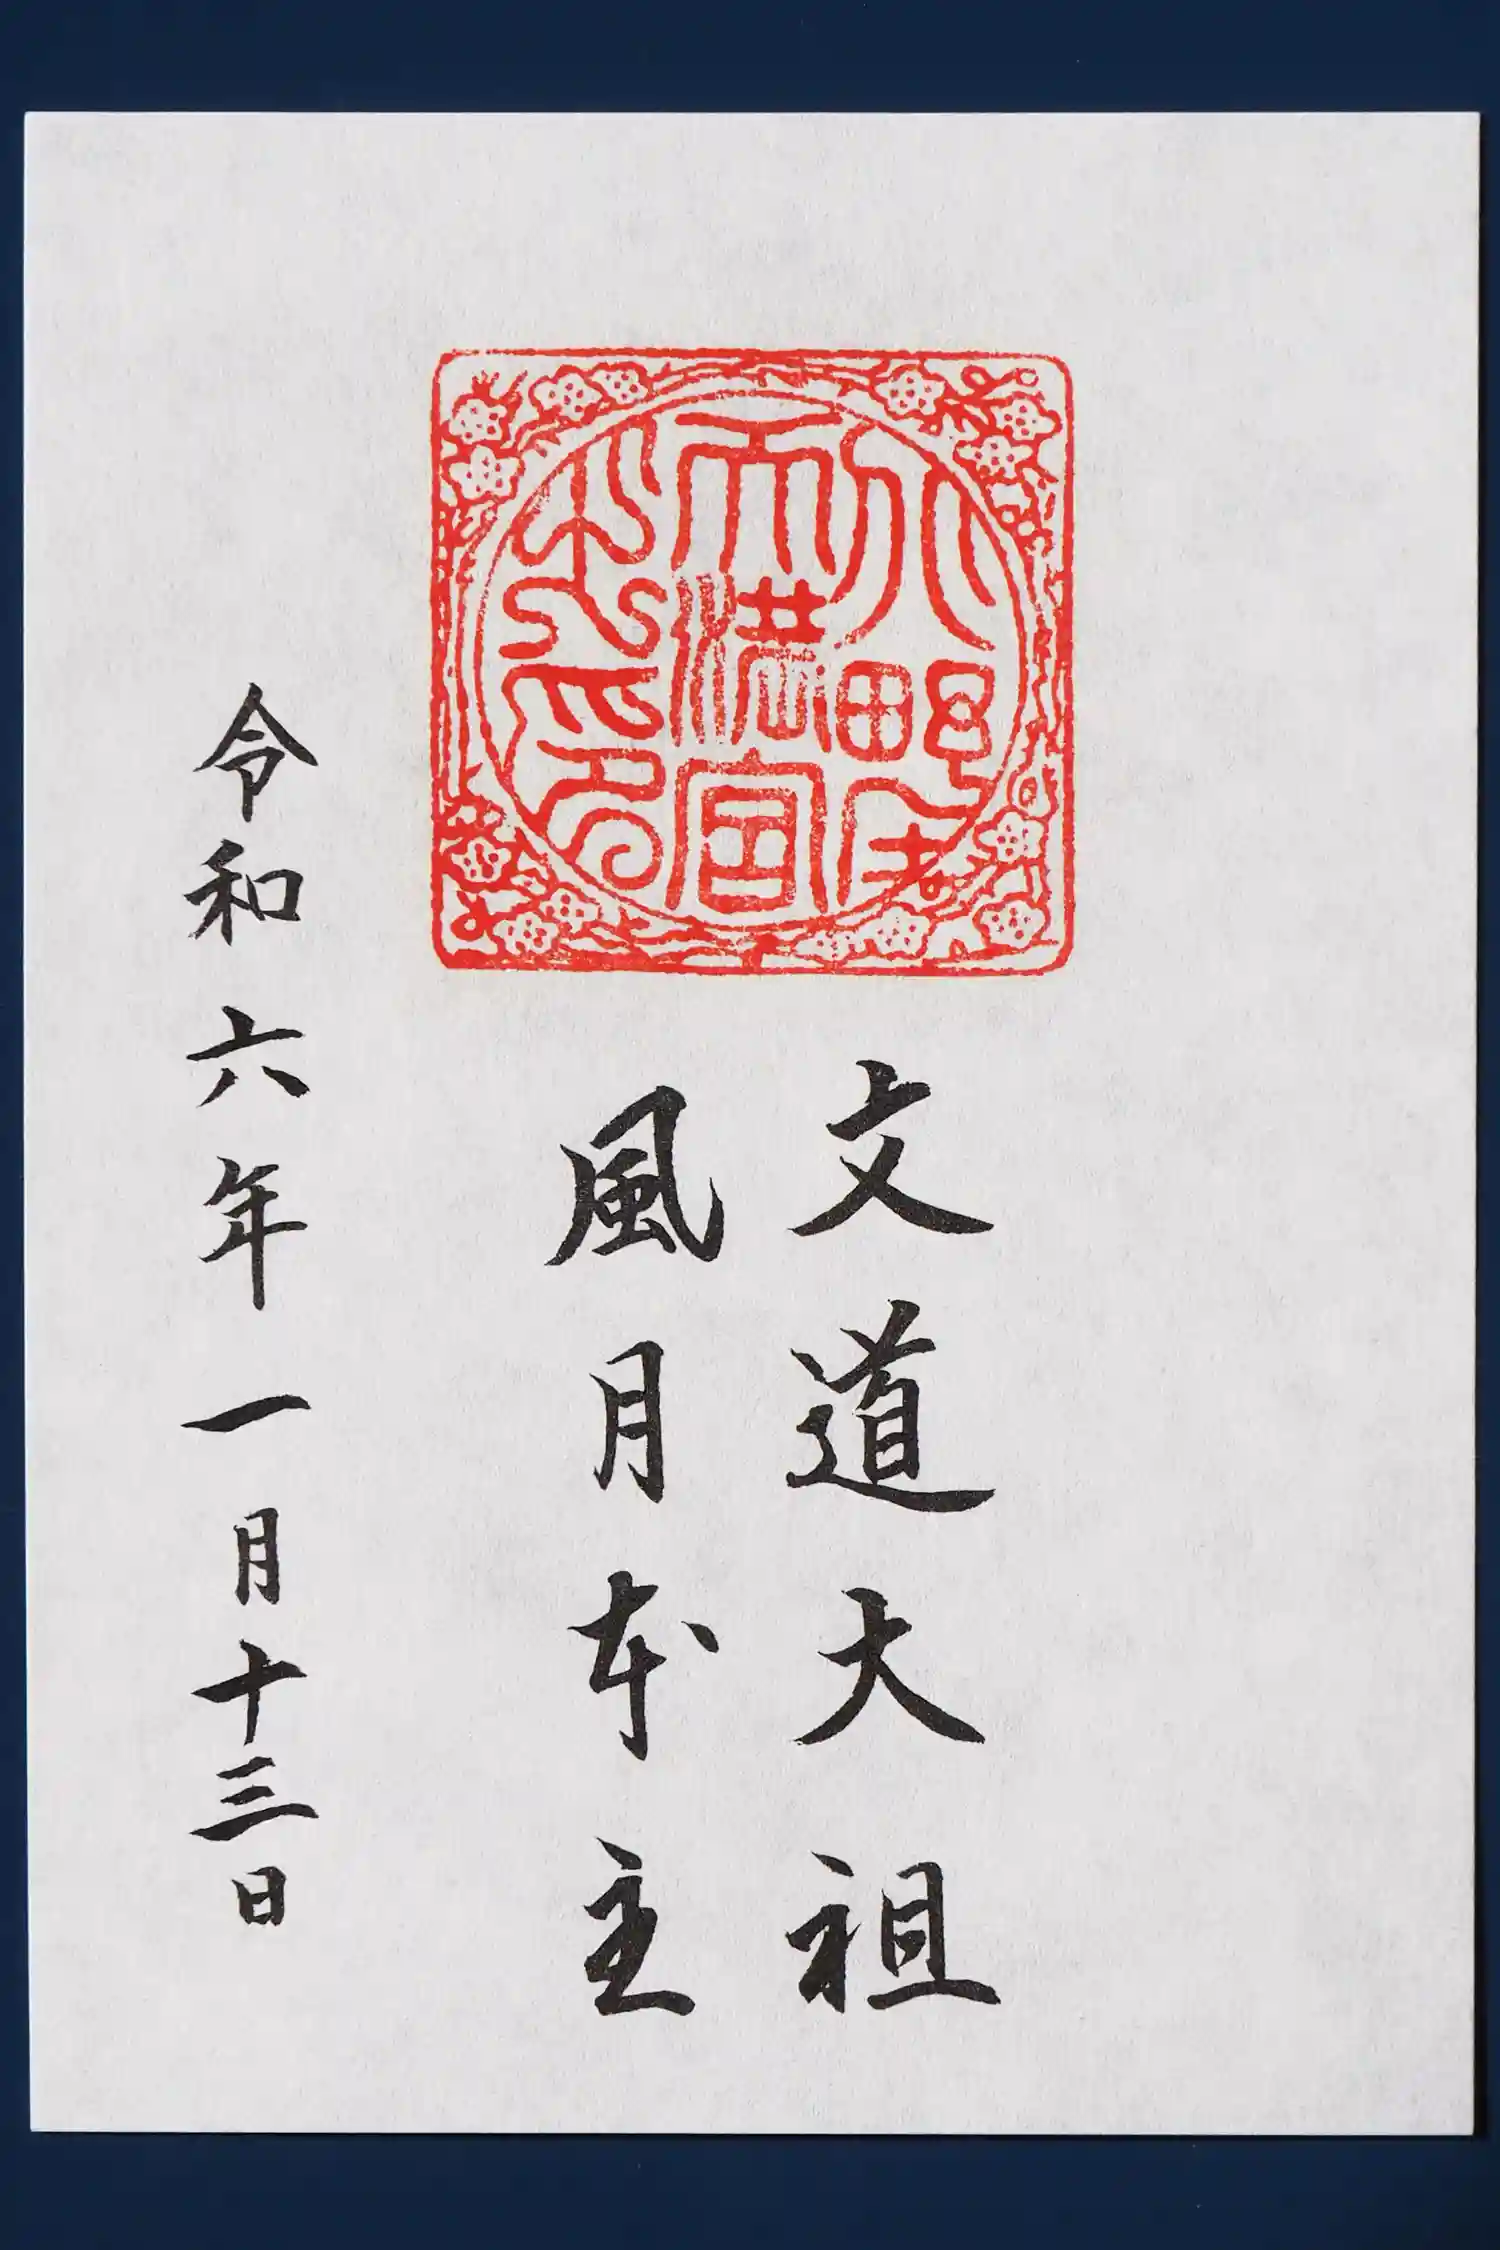 天満宮
文道大祖
風月本主
令和六年一月十三日